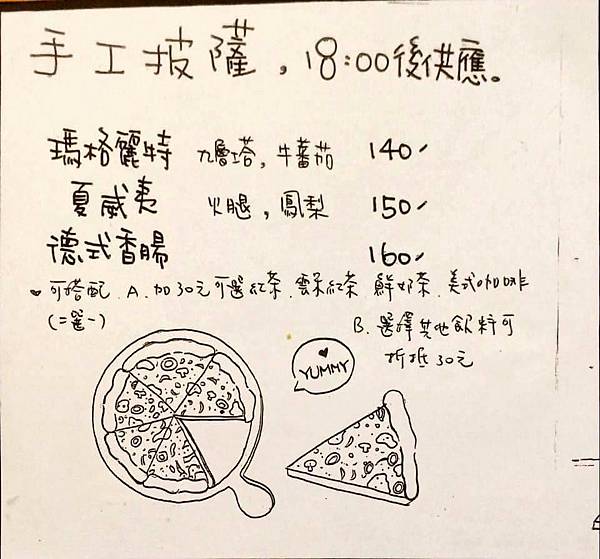 手工披薩，18:00後供應。
瑪格麗特 九層塔，牛蕃茄 140/
夏威夷 火腿，鳳梨 150/
德式香腸 160/
♥可搭配 A. 加30元可選紅茶.雲朵紅茶 鮮奶茶.美式咖啡
(二選一) B. 選擇其他飲料可
折抵30元
YUMMY